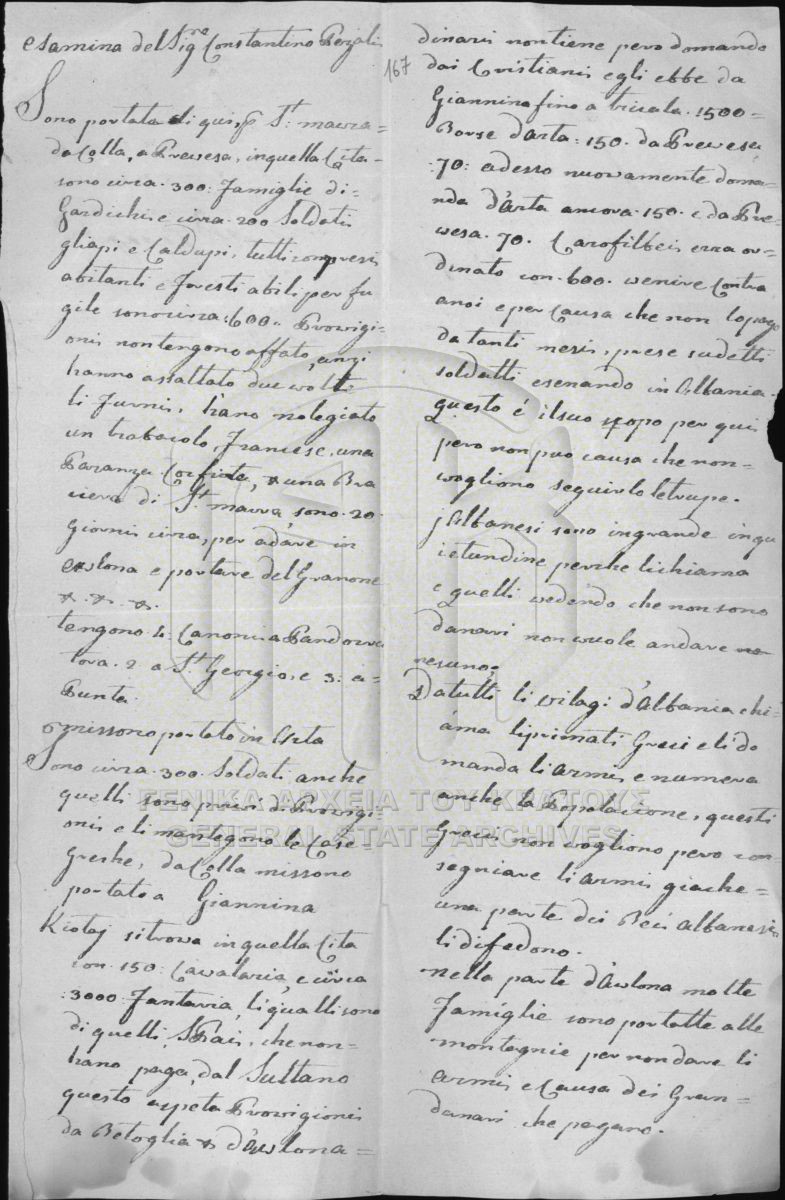 esamina del Sigre Constantino
167
Sono portata di qui, p St: maura =
da Colla, a Prevesa, in quella Cita -
sono circa. 300: famiglie di -
Gardichi, e circa. 200 Soldati
gliapi e Caldupi, tutti compresi
abitanti e foresti abili per fu
gile sono circa: 600= Provigi=
onis non tengono affato, anzi
hanno assaltato due wolte
li furnis, háno nolegiato
un trabacolo, francese, una
Paranza Corfiota, una Bra
ciera di St maura sono. 20.
Giornis circa, per adáre in
e portare del Granone
tengono 4: Canonis a
2 a St Georgio, e 3: a =
Punta.
missono portato in Arta
Sono circa. 300. Soldati, anche
quelli sono privi di Provigi=
onis e li mantegono le Case
Greshe, da Colla missono
portato a Giannina
Kiotaj sitrova in quella Cita
con. 150: Cavalaria, e circa
:3000: fantaria, li qualli sono
di quelli, che non =
hano paga, dal Sultano
questo aspeta Provigionis
da Betoglia d'Awlona =
dinaris non tiene pero domando
dai Cristianis egli ebbe da
Giannina fino a tricala. 1500 =
Borse d'Arta: 150. da Prewesa
:70: adesso nuovamente doma=
nda d'Arta ancora. 150. e da Pre=
wesa. 70. erra or=
dinato con. 600. wenire Contra
a noi e per Causa che non lo pago
da tanti mesis, prese sudetti
soldatti esenando in Albania.
questo é il suo scopo per qui
pero non puo causa che non =
wogliono seguirlo le trupe.
j Albanesi sono in grande inqu
ietundine perche li chiama
e quelli wedéndo che non sono
danari non wuole andare
nesuno;
Da tutti li vilagi d'Albania chi=
áma li primati Greci e li do
manda li Armis e numera
anche la Popolacione, questi
Greci non wogliono pero con=
segniare li armis giache =
una parte dei Beci albanesis
li difedono.
nella parte d'Awlona molte
famiglie sono portatte alle
montagnie per non dare li
armis e Causa dei Gran =
danari che pagano.
ΓΕΝΙΚΑ ΑΡΧΕΙΑ ΤΟΥ ΚΡΑΤΟΥΣ
GENERAL STATE ARCHIVES